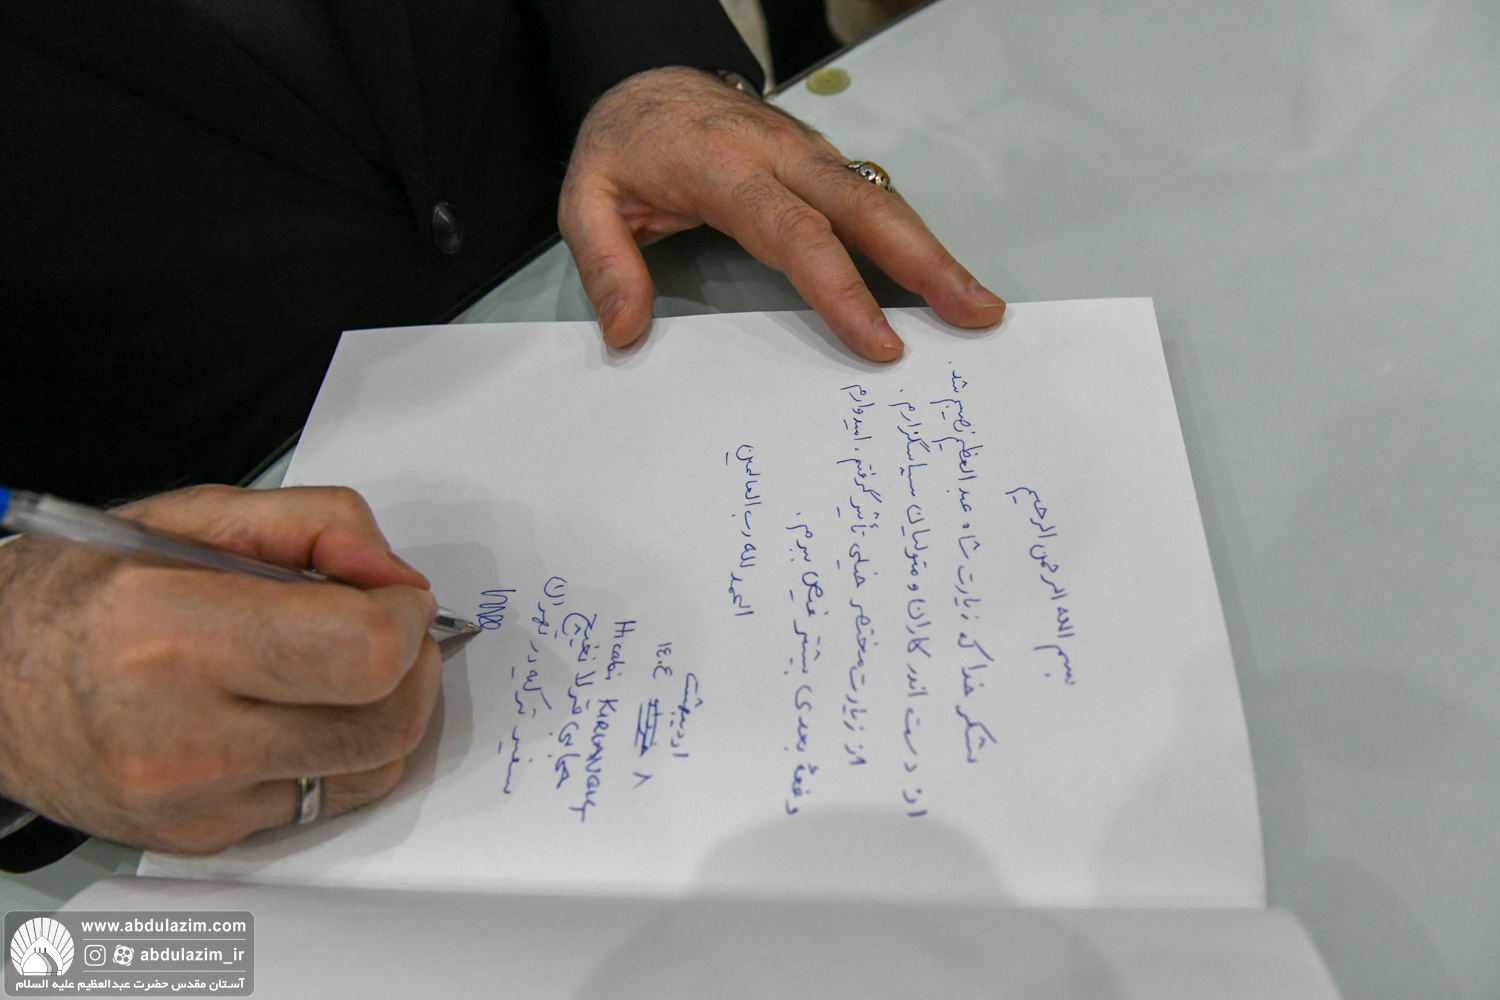 بسم الله الرحمن الرحیم
تشکر خدا که زیارت شاه عبدالعظیم نصیبم شد.
از دست اندرکاران و متولیان سپاسگزارم.
از زیارت مختصر خیلی تأثیر گرفتم. امیدوارم
دفعۀ بعدی بیشتر فیض ببرم.
الحمد لله رب العالمین
اردیبهشت
۸ ۱۴۰۴
Hicabi KIRLANGIÇ
حجابی قیرلانغیچ
سفیر ترکیه در تهران
www.abdulazim.com
abdulazim_ir
آستان مقدس حضرت عبدالعظیم علیه السلام